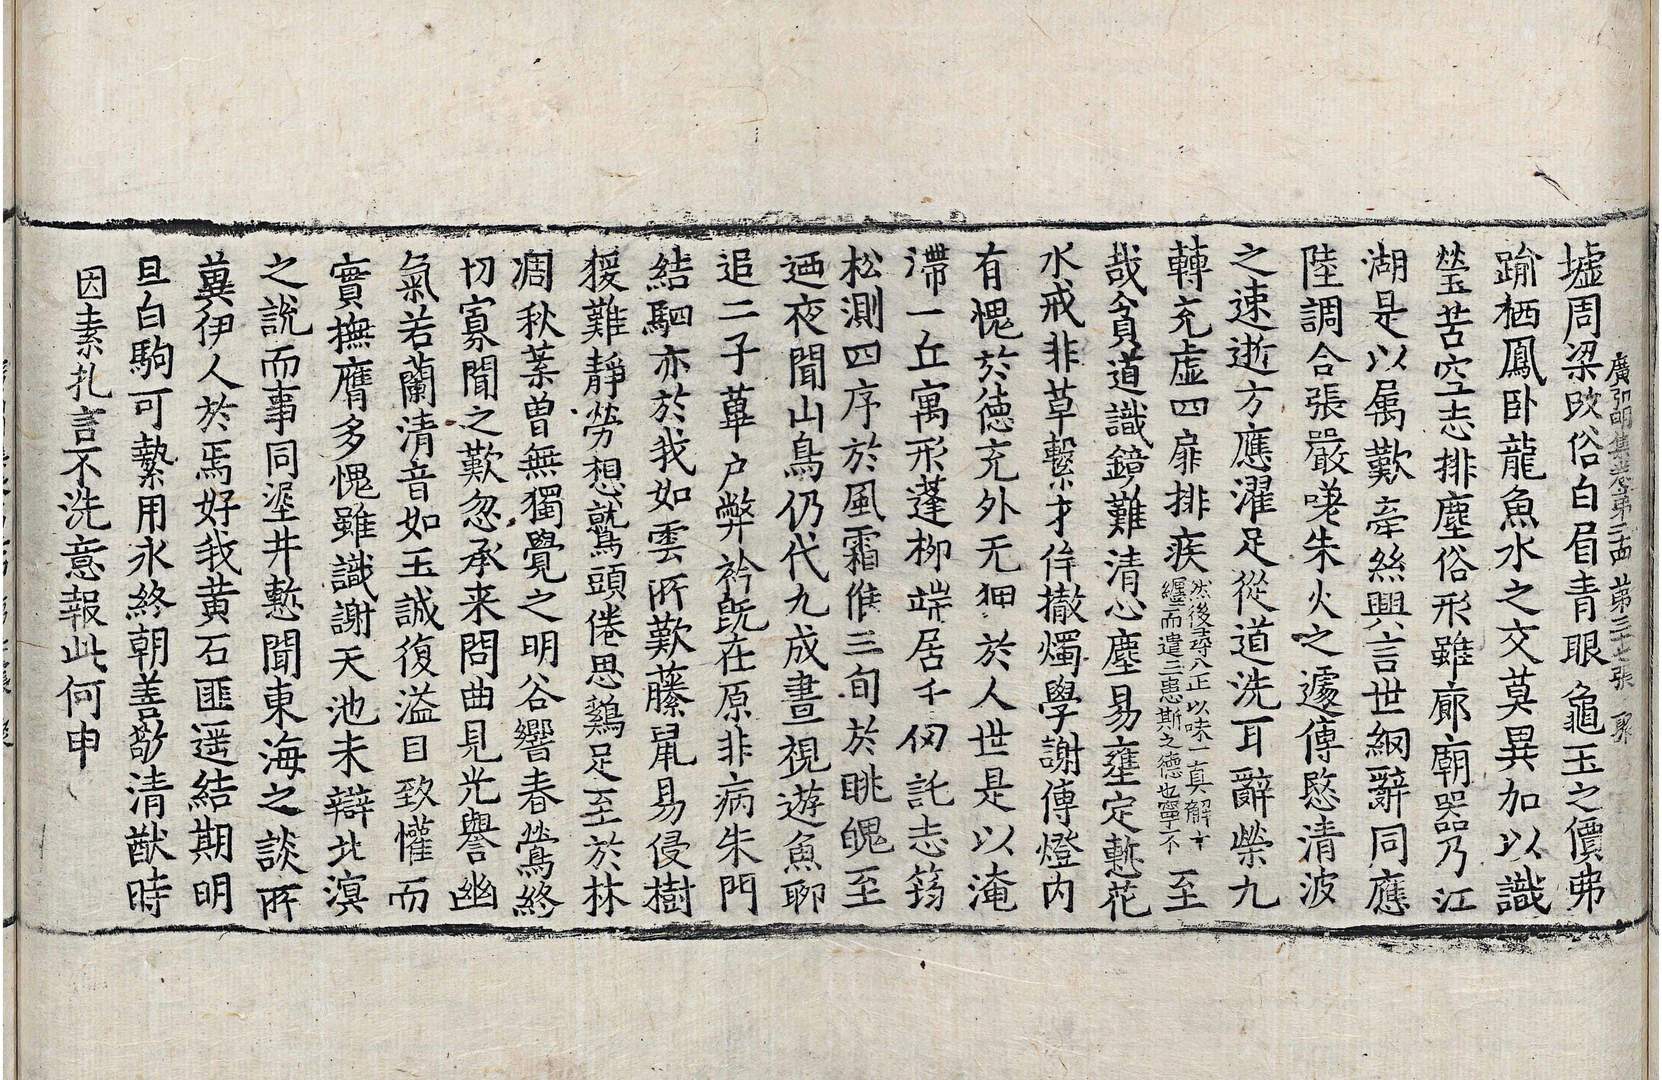 廣弘明集卷第二十四 第三七張 聚
墟周梁改俗白眉青眼龜玉之價弗
踰栖鳳卧龍魚水之交莫異加以識
瑩苦空志排塵俗形雖廊廟器乃江
湖是以屬歎牽絲興言世網辭同應
陸調合張嚴嗟朱火之遽傳愍清波
之速逝方應濯足從道洗耳辭榮九
轉充虛四扉排疾然後尋八正以味一真解十
纏而遣三患斯之德也寧不至
哉貧道識鏡難清心塵易壅定慙花
水戒非草繫才侔撤燭學謝傳燈内
有愧於德充外无狎於人世是以淹
滯一丘寓形蓬柳端居千仞託志筠
松測四序於風霜候三旬於眺魄至
迺夜聞山鳥仍代九成晝視遊魚聊
追二子蓽户弊衿旣在原非病朱門
結駟亦於我如雲所歎藤鼠易侵樹
猨難靜勞想鷲頭倦思鷄足至於林
凋秋葉曾無獨覺之明谷響春鶯終
切寡聞之歎忽承来問曲見光譽幽
氣若蘭清音如玉誠復溢目致懽而
實撫膺多愧雖識謝天池未辯北溟
之說而事同埳井慙聞東海之談所
冀伊人於焉好我黄石匪遥結期明
旦白駒可縶用永終朝善敬清猷時
因素札言不洗意報此何申